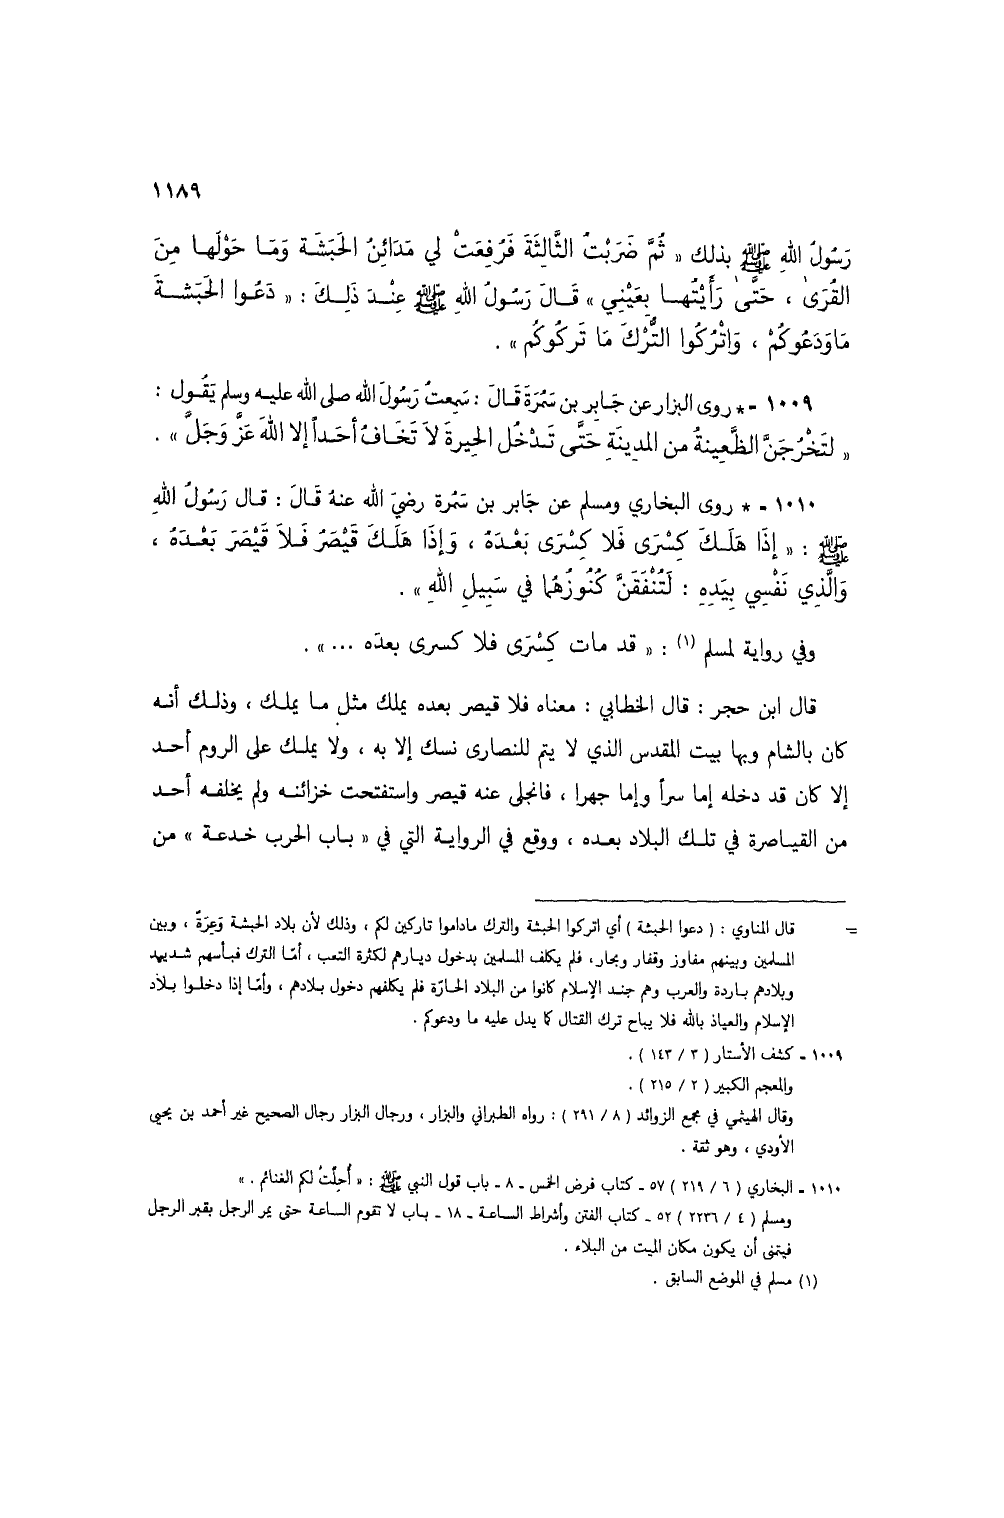 ١١٨٩
رَسُولُ اللهِ ﷺ بذلك « ثُمَّ ضَرَبْتُ الثَّالِثَةَ فَرُفِعَتْ لي مَدَائِنُ الحَبَشَة وَمَا حَوْلَها مِنَ
القُرَىٰ ، حَتَّىٰ رَأَيْتُها بِعَيْنِي » قَالَ رَسُولُ اللهِ ﷺ عِنْدَ ذَلِكَ : « دَعُوا الحَبَشةَ
مَاوَدَعُوكُمْ ، وَاتْرُكُوا التُّرْكَ مَا تَركُوكُم » .
١٠٠٩ - * روى البزار عن جَابِر بن سَمُرَةَ قَالَ : سَمِعتُ رَسُولَ الله صلى الله عليه وسلم يَقُول :
« لتَخْرُجَنَّ الظَّعِينةُ من المدِينَةِ حَتَّى تَدْخُل الحِيرةَ لاَ تَخَافُ أحَداً إلا اللهَ عَزَّ وَجَلَّ » .
١٠١٠ - * روى البخاري ومسلم عن جَابر بن سَمُرة رضيَ الله عنهُ قَالَ : قال رَسُولُ اللهِ
ﷺ : « إذَا هَلَكَ كِسْرَى فَلا كِسْرَى بَعْدَهُ ، وَإذَا هَلَكَ قَيْصَرُ فَلاَ قَيْصَرَ بَعْدَهُ ،
وَالَّذِي نَفْسِي بِيَدِهِ : لَتُنْفَقَنَّ كُنُوزُهُما في سَبِيلِ اللهِ » .
وفي رواية لمسلم (١) : « قد مات كِسْرَى فلا كسرى بعدَه ... » .
قال ابن حجر : قال الخطابي : معناه فلا قيصر بعده يملك مثل ما يملك ، وذلك أنه
كان بالشام وبها بيت المقدس الذي لا يتم للنصارى نسك إلا به ، ولا يملك على الروم أحد
إلا كان قد دخله إما سراً وإما جهرا ، فانجلى عنه قيصر واستفتحت خزائنه ولم يخلفه أحد
من القياصرة في تلك البلاد بعده ، ووقع في الرواية التي في « باب الحرب خدعة » من
= قال المناوي : ( دعوا الحبشة ) أي اتركوا الحبشة والترك ماداموا تاركين لكم ، وذلك لأن بلاد الحبشة وَعِرَةٌ ، وبين
المسلمين وبينهم مفاوز وقفار وبحار، فلم يكلف المسلمين بدخول ديارهم لكثرة التعب ، أمّا الترك فبأسهم شديهد
وبلادهم باردة والعرب وهم جند الإسلام كانوا من البلاد الحارّة فلم يكلفهم دخول بلادهم ، وأمّا إذا دخلوا بلاد
الإسلام والعياذ بالله فلا يباح ترك القتال كما يدل عليه ما ودعوكم .
١٠٠٩ - كشف الأستار ( ٣ / ١٤٣ ) .
والمعجم الكبير ( ٢ / ٢١٥ ) .
وقال الهيثمي في مجمع الزوائد ( ٨ / ٢٩١ ) : رواه الطبراني والبزار ، ورجال البزار رجال الصحيح غير أحمد بن يحيى
الأودي ، وهو ثقة .
١٠١٠ - البخاري ( ٦ / ٢١٩ ) ٥٧ - كتاب فرض الخمس - ٨ - باب قول النبي ﷺ : « أُحِلَّتْ لكم الغنائم . »
ومسلم ( ٤ / ٢٢٣٦ ) ٥٢ - كتاب الفتن وأشراط الساعة - ١٨ - باب لا تقوم الساعة حتى يمر الرجل بقبر الرجل
فيتمنى أن يكون مكان الميت من البلاء .
(١) مسلم في الموضع السابق .